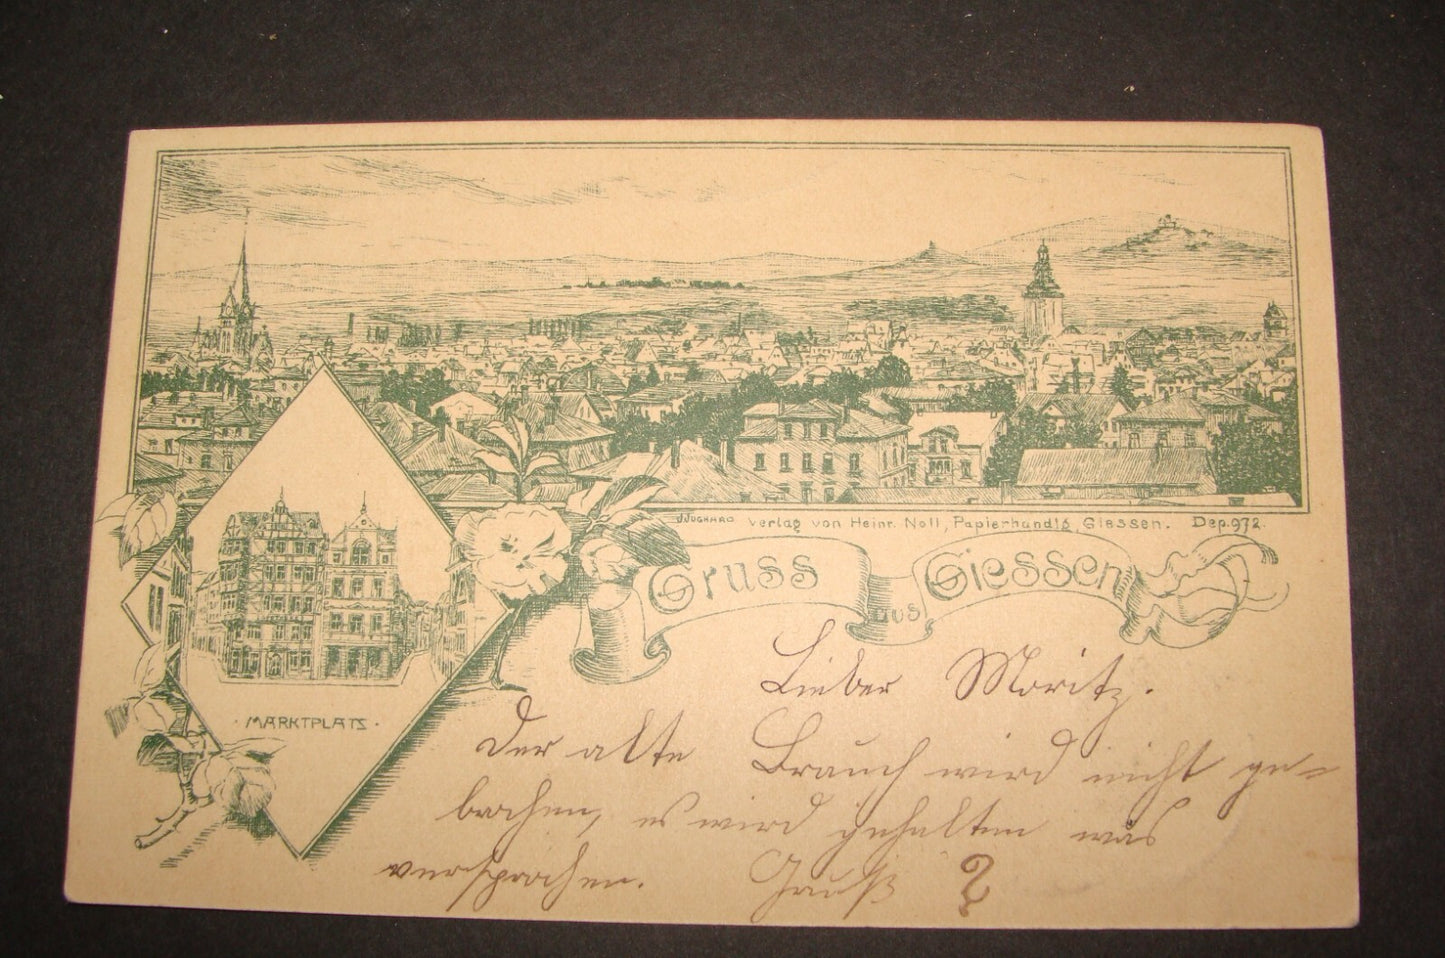 Verlag von Heinr. Noll, Papierhandlg Giessen. Dep.972.
Gruss aus Giessen
MARKTPLATZ
Lieber Moritz.
Der alte Brauch wird nicht ge=
brochen, es wird gehalten was
versprochen. Gruß